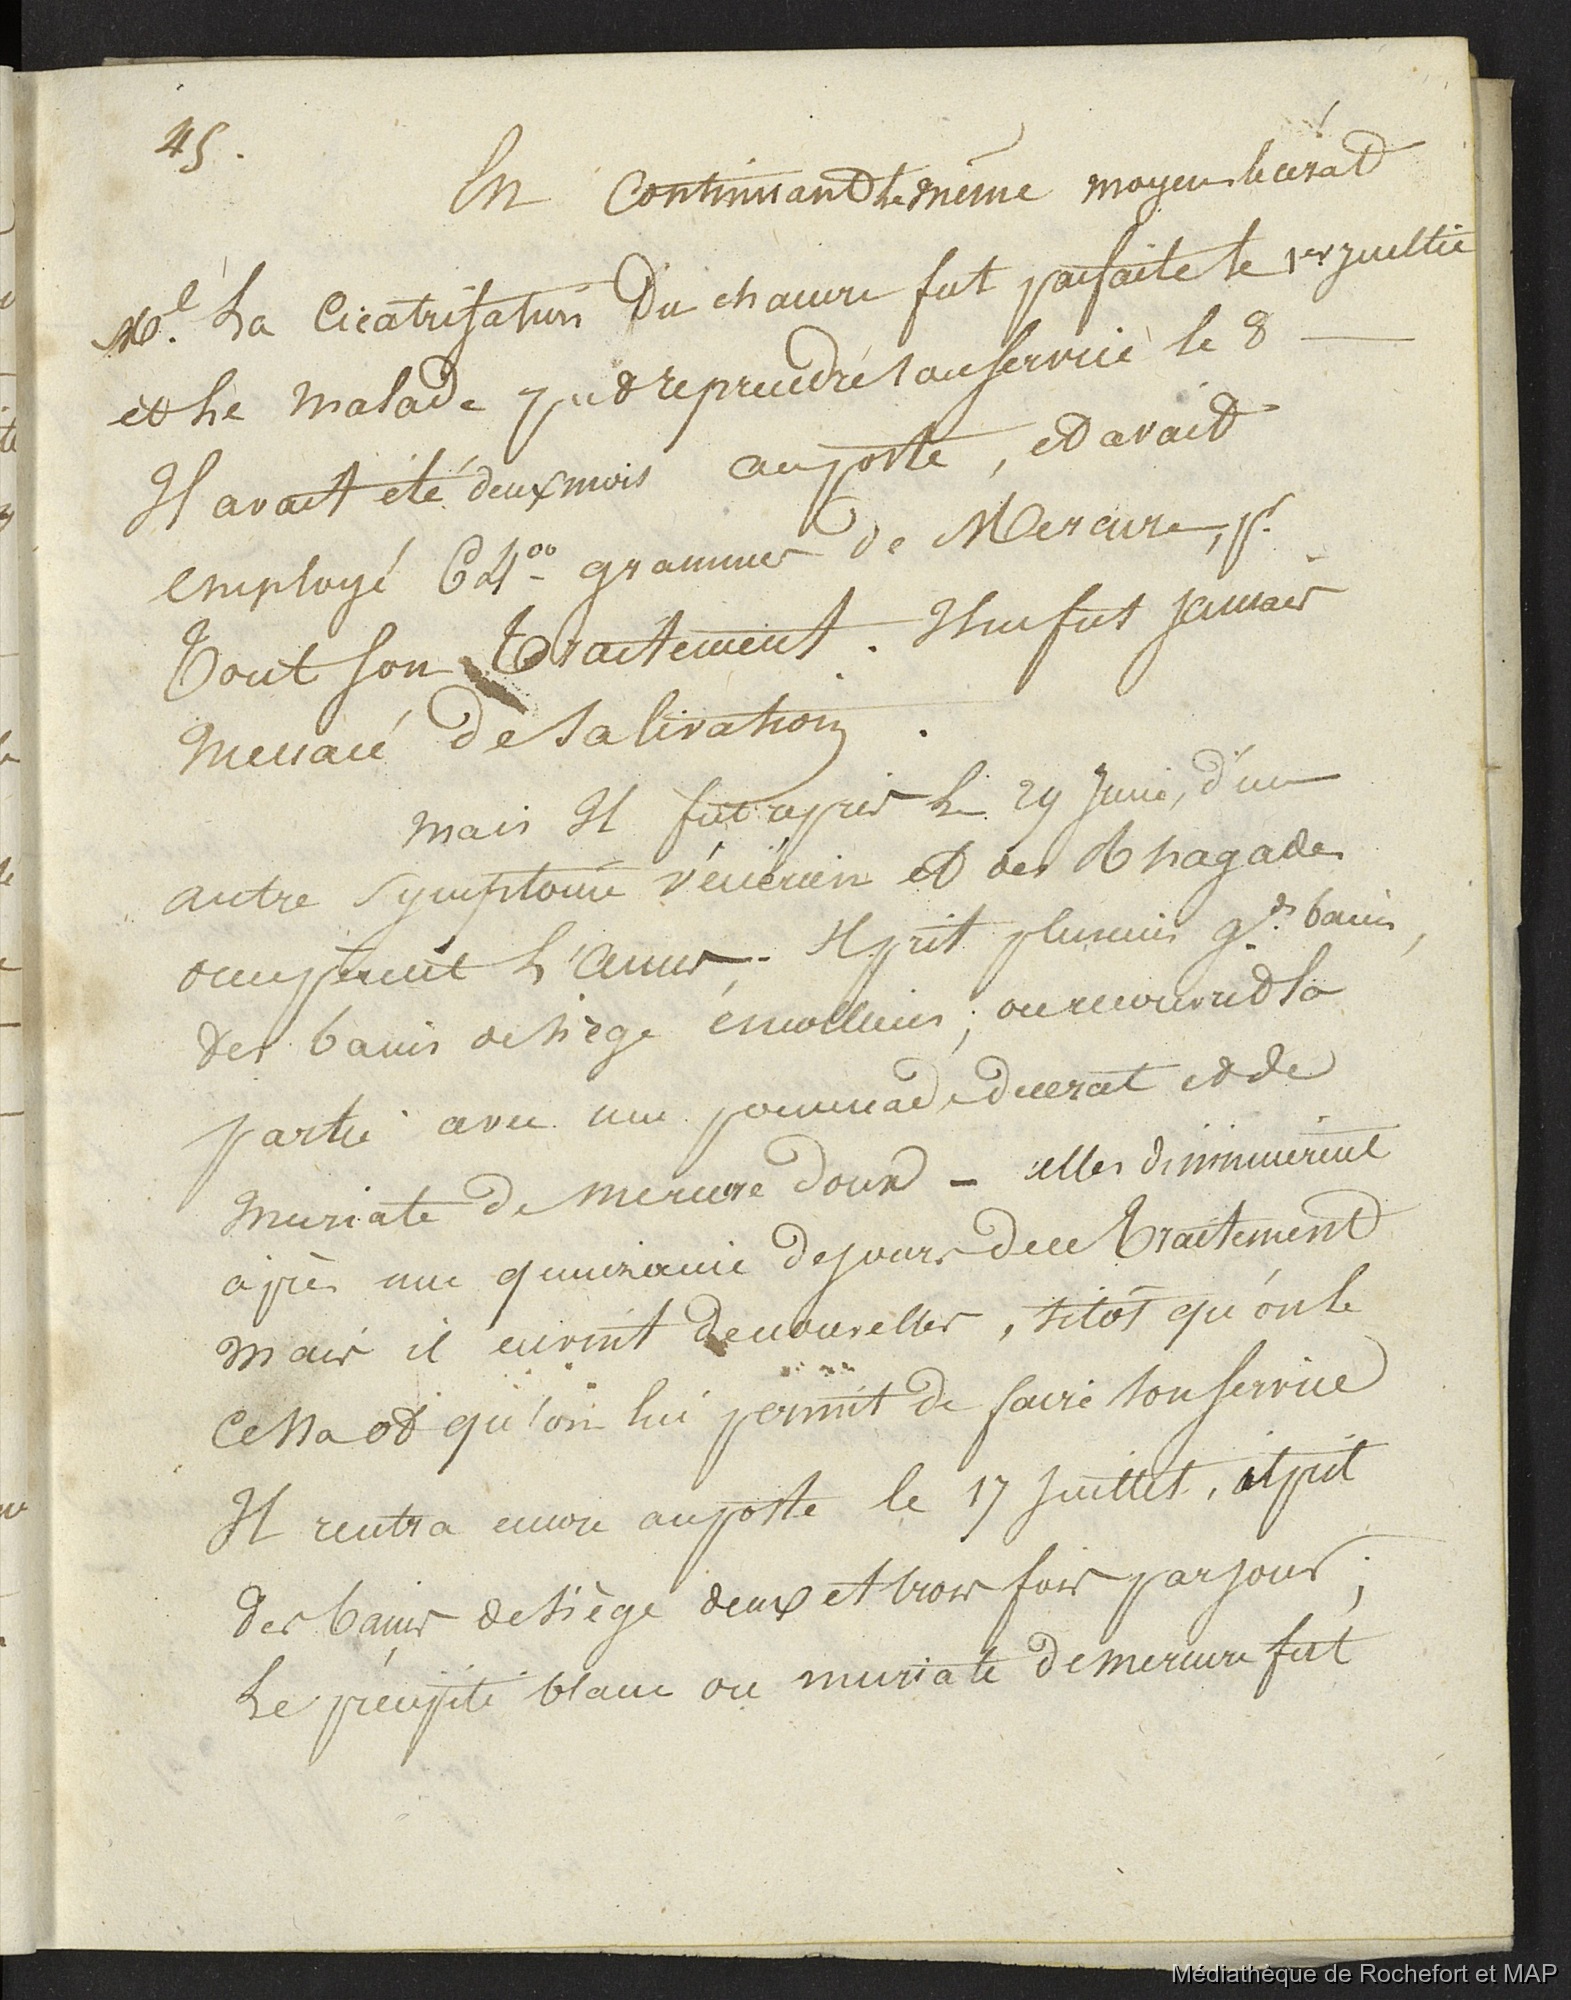 45.
En continuant le même moyen le cerat
Mel. La Cicatrisation du chancre fut parfaite le 1er juillie
et le malade put reprendre son service le 8
Il avait été deux mois au poste, et avait
employé grammes de Mercure, pr.
Tout son Traitement. Il ne fut jamais
menacé de salivation.
mais Il fut après le 29 Juin, d'un
autre symptome vénérien et des Rhagades
occupèrent l'anus, - Il prit plusieurs gds. bains,
des bains de siège émolliens; on recouvrit la
partie avec une pommade de cerat et de
muriate de mercure doux - elles diminuèrent
après une quinzaine de jours de ce Traitement
mais il en vint de nouvelles, sitôt qu'on le
cessa et qu'on lui permit de faire son service
Il rentra encore au poste le 17 Juillet, il prit
des bains de siège deux et trois fois par jour;
Le précipité blanc ou muriate de mercure fut
Médiathèque de Rochefort et MAP